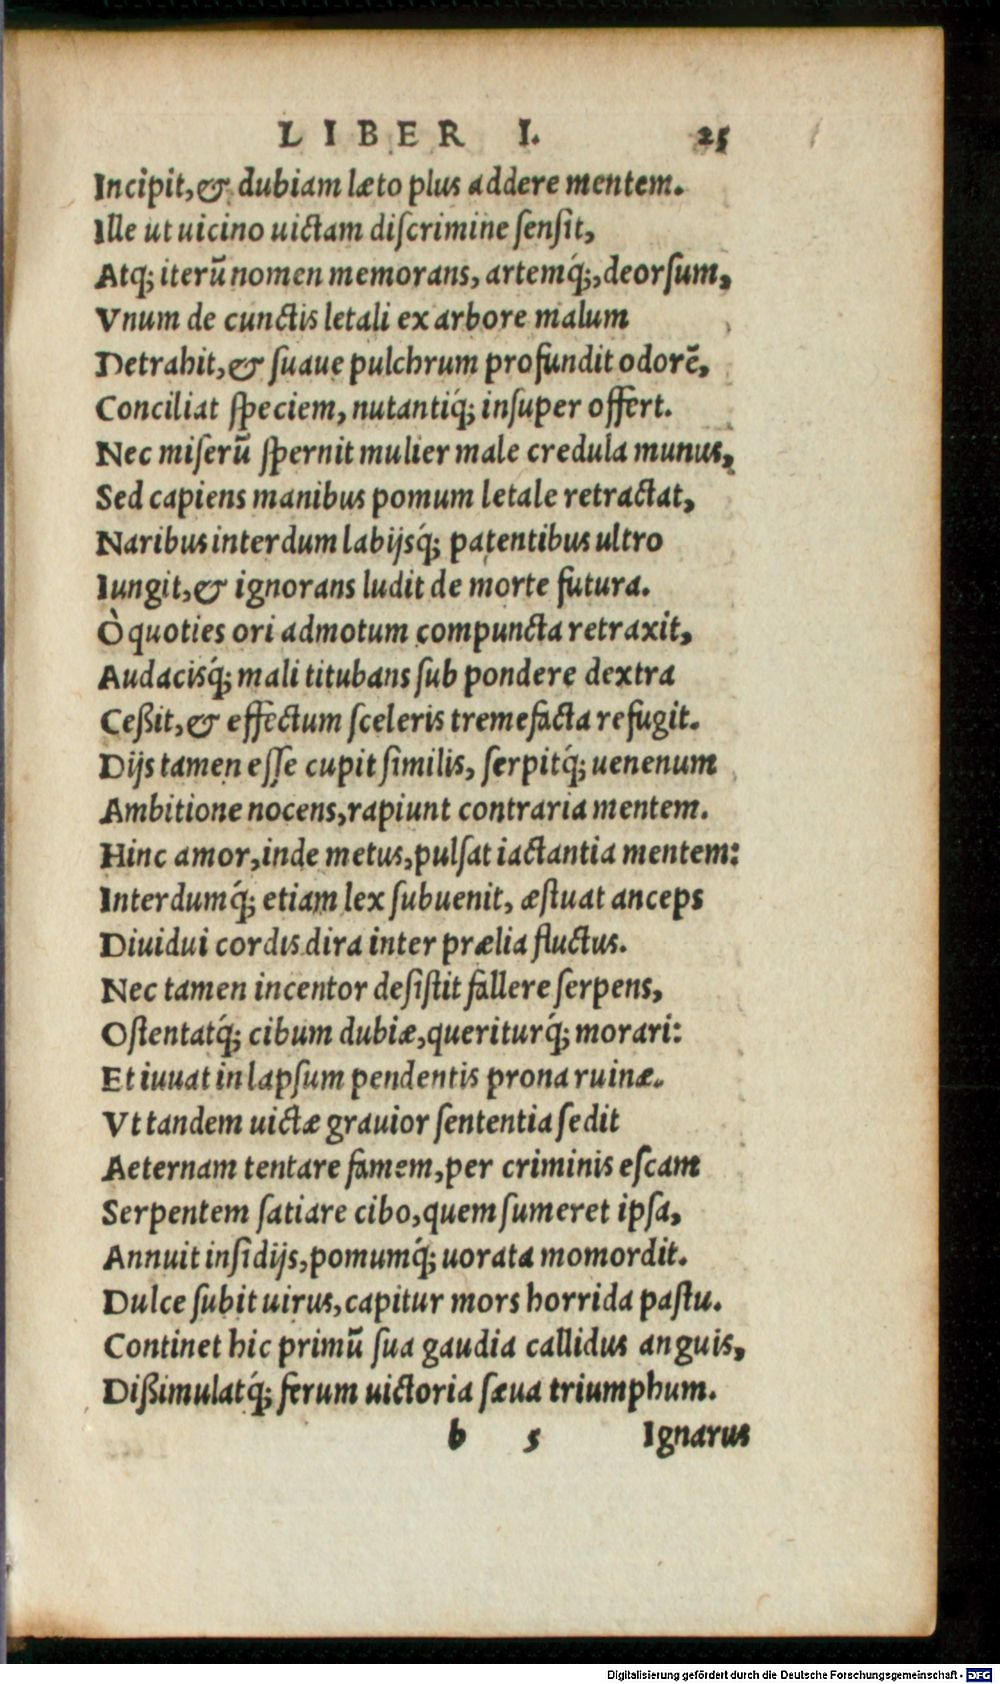 LIBER I. 25
Incipit, & dubiam læto plus addere mentem.
Ille ut uicino uictam diſcrimine ſenſit,
Atq; iterū nomen memorans, artemq́;, deorſum,
Vnum de cunctis letali ex arbore malum
Detrahit, & ſuaue pulchrum profundit odorē,
Conciliat ſpeciem, nutantiq́; inſuper offert.
Nec miſerū ſpernit mulier male credula munus,
Sed capiens manibus pomum letale retractat,
Naribus interdum labijsq́; patentibus ultro
Iungit, & ignorans ludit de morte futura.
Ò quoties ori admotum compuncta retraxit,
Audacisq́; mali titubans ſub pondere dextra
Ceßit, & effectum ſceleris tremefacta refugit.
Dijs tamen eſſe cupit ſimilis, ſerpitq́; uenenum
Ambitione nocens, rapiunt contraria mentem.
Hinc amor, inde metus, pulſat iactantia mentem:
Interdumq́; etiam lex ſubuenit, æſtuat anceps
Diuidui cordis dira inter prælia fluctus.
Nec tamen incentor deſiſtit fallere ſerpens,
Oſtentatq́; cibum dubiæ, queriturq́; morari:
Et iuuat in lapſum pendentis prona ruinæ.
Vt tandem uictæ grauior ſententia ſedit
Aeternam tentare famem, per criminis eſcam
Serpentem ſatiare cibo, quem ſumeret ipſa,
Annuit inſidijs, pomumq́; uorata momordit.
Dulce ſubit uirus, capitur mors horrida paſtu.
Continet hic primū ſua gaudia callidus anguis,
Dißimulatq́; ferum uictoria ſæua triumphum.
b 5 Ignarus
Digitalisierung gefördert durch die Deutsche Forschungsgemeinschaft - DFG